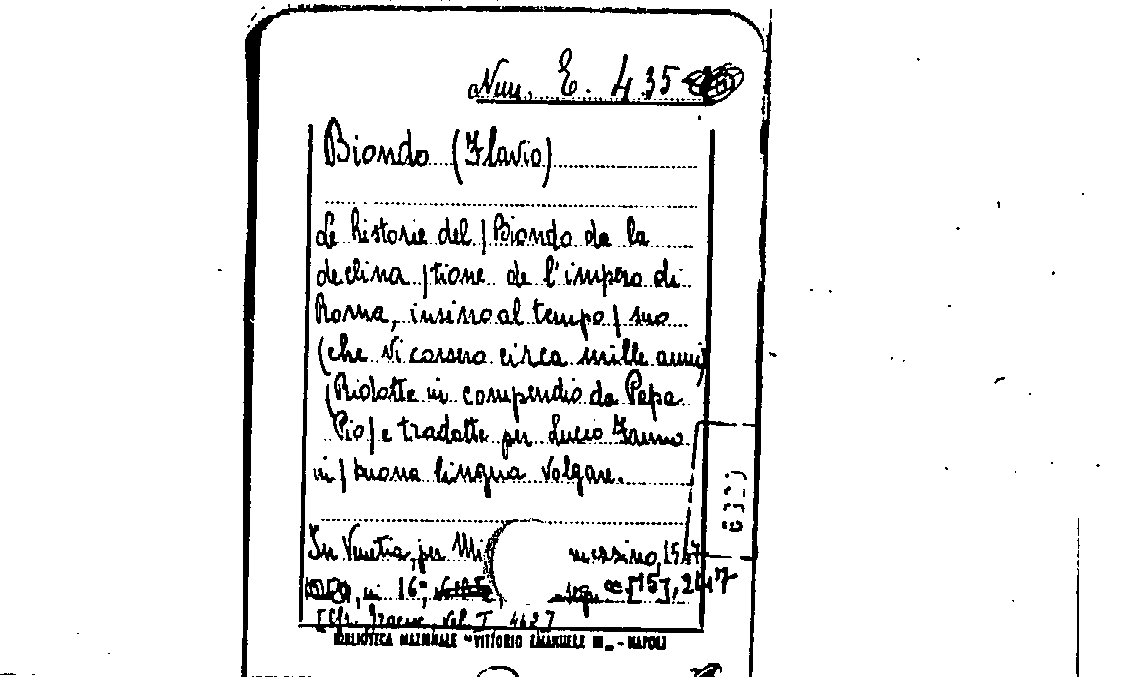 Num. E. 435
Biondo (Flavio)
Le historie del | Biondo da la
declina | tione de l'impero di
Roma, insino al tempo | suo
(che vi corsero circa mille anni)
Ridotte in compendio da Papa
Pio | e tradotte per Lucio Fauno
in | buona lingua volgare.
In Venetia, per Mi messino, 1547
in 16°, [15], 247
4627
BIBLIOTECA NAZIONALE "VITTORIO EMANUELE III„ - NAPOLI